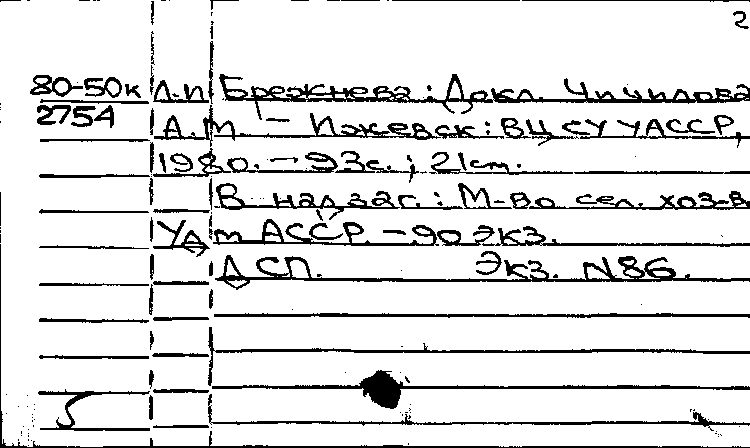 2
80-50к Л.И. Брежнева: Докл. Чичилова
2754 А.М. — Ижевск: ВЦ СУ УАССР,
1980. — 93с.; 21см.
В надзаг.: М-во сел. хоз-в.
Удм АССР. — 90 экз.
ДСП. Экз. N86.
5